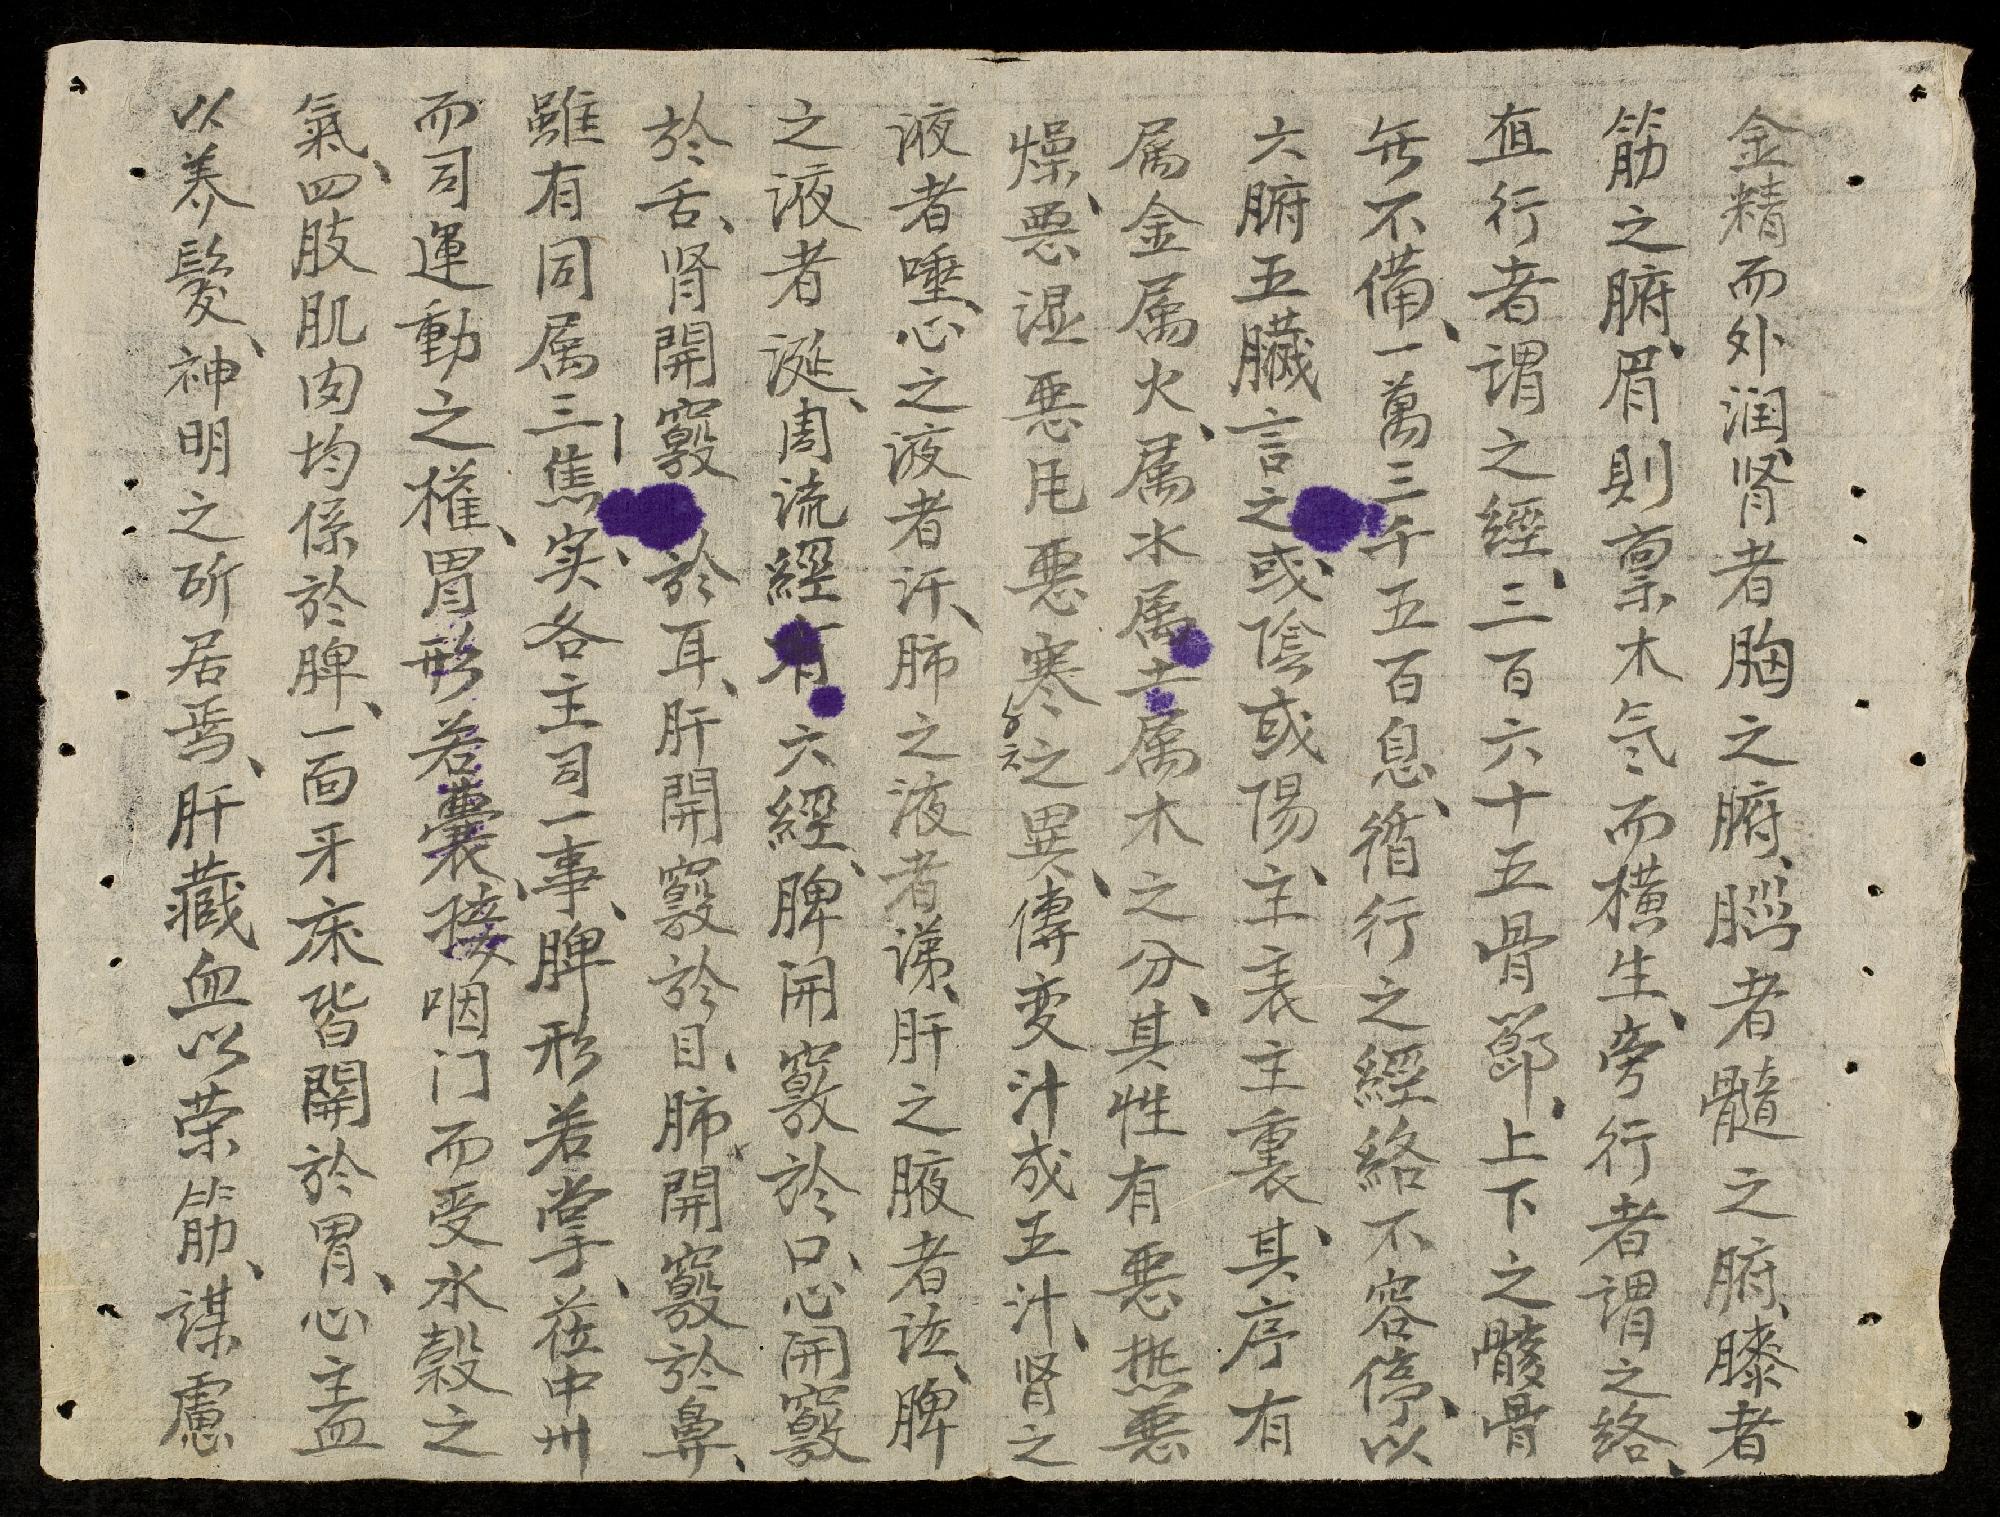 金精而外润肾者胸之腑、腦者髓之腑、膝者
筋之腑、眉則禀木气而横生、旁行者謂之絡、
直行者謂之經、三百六十五骨節、上下之髏骨
無不備、一萬三千五百息、循行之經絡不容停、以
六腑五臟言之、或陰或陽、主表主裏、其序有
属金属火、属水属土属木之分、其性有悪热悪
燥、悪湿悪風悪寒之異、傳变汁成五汁、肾之
液者唾、心之液者汗、肺之液者涕、肝之腋者泣、脾
之液者涎、周流經有六經、脾開竅於口、心開竅
於舌、肾開竅於耳、肝開竅於目、肺開竅於鼻、
雖有同属三焦、实各主司一事、脾形若掌、莅中州
而司運動之權、胃形若囊、接咽门而受水穀之
氣、四肢肌肉均係於脾、一面牙床皆開於胃、心主血
以养髮、神明之所居焉、肝藏血以荣筋、謀慮